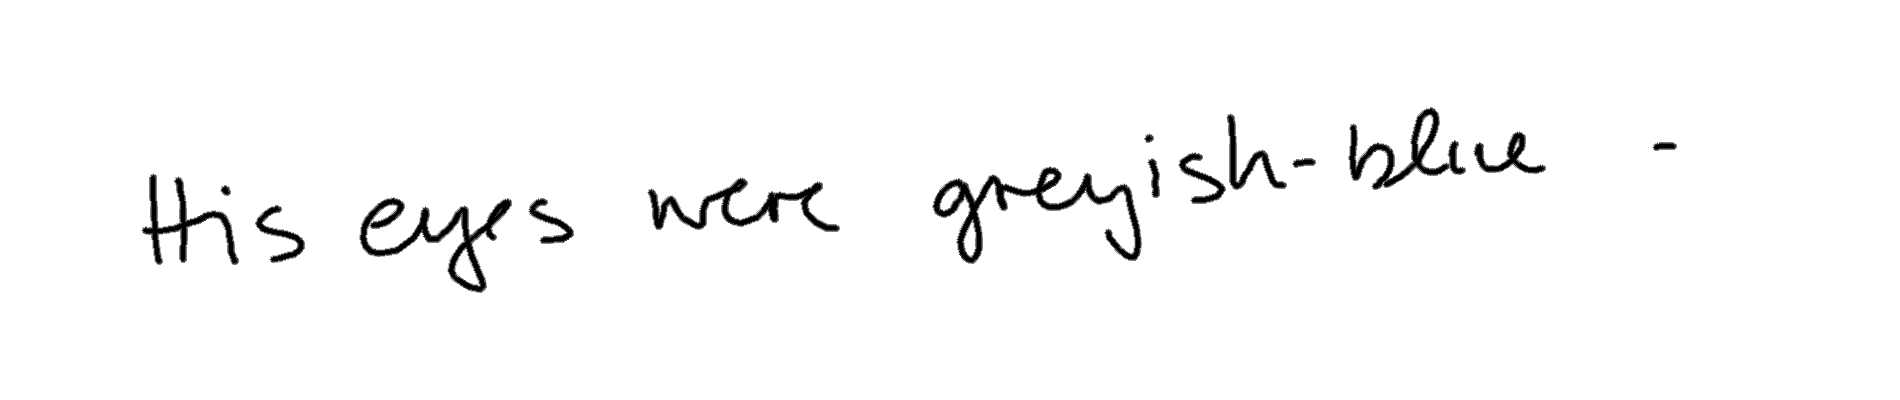 His eyes were greyish-blue -